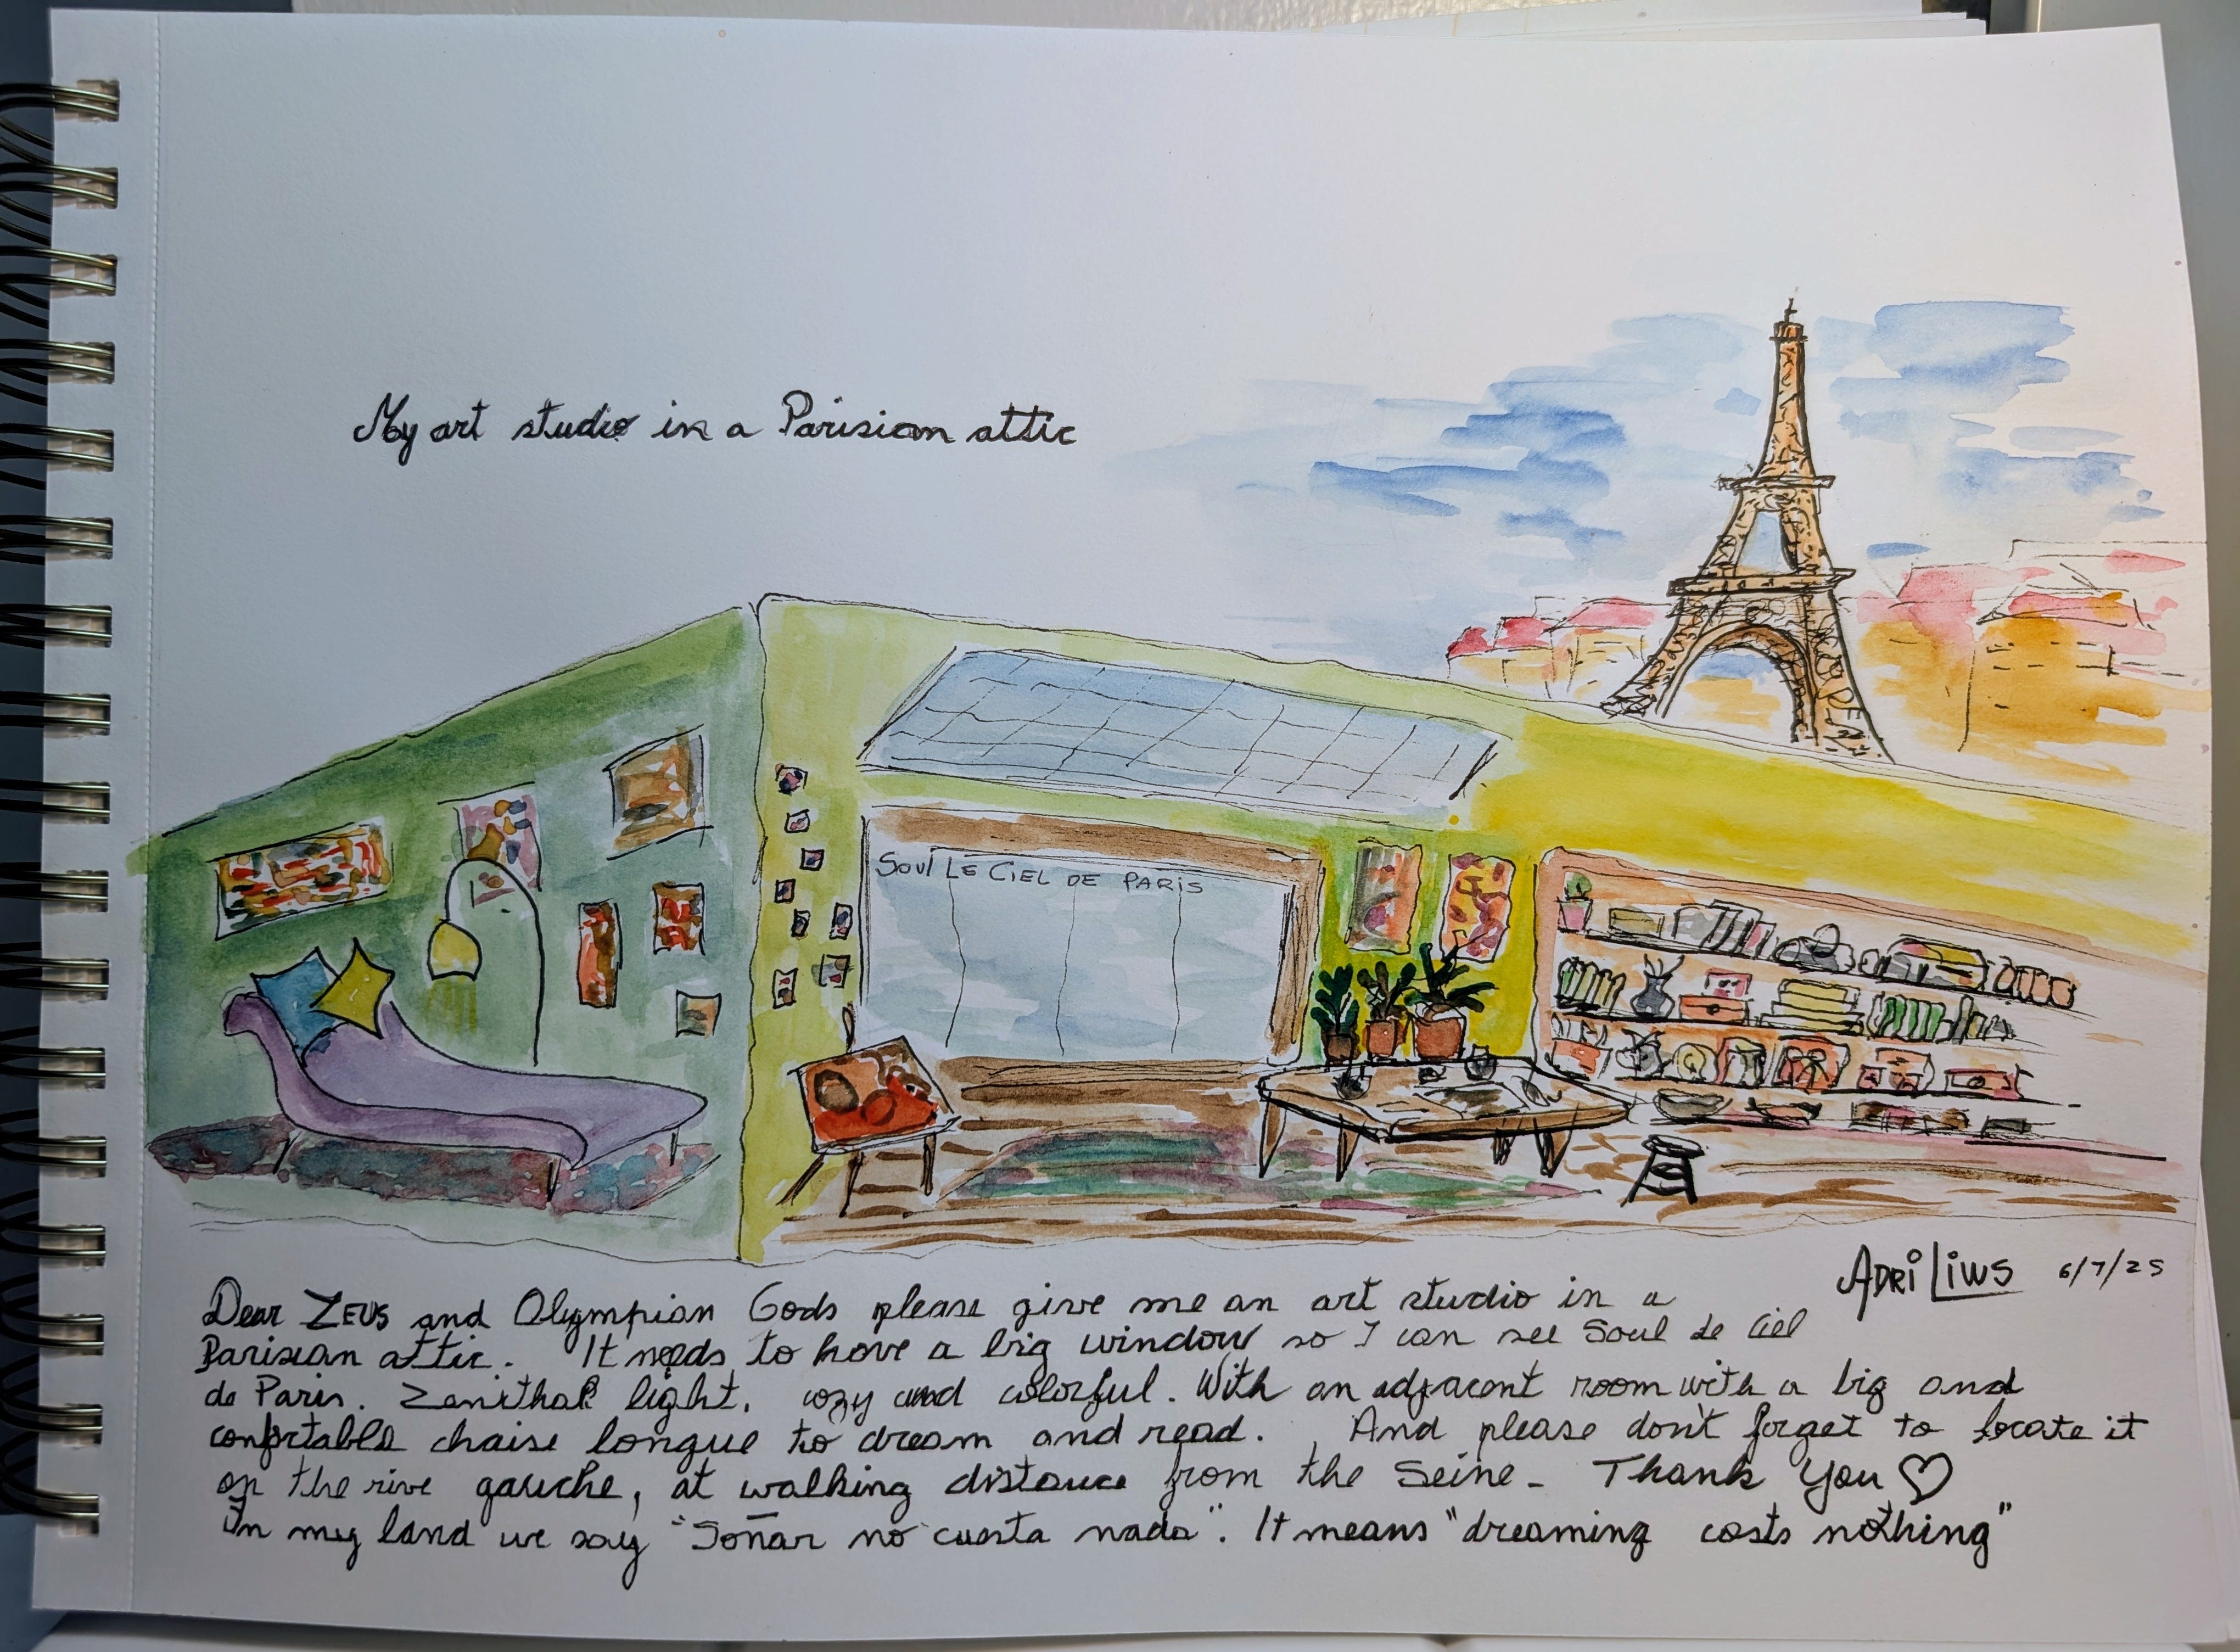 My art studio in a Parisian attic
SOUL LE CIEL DE PARIS
ADRI LIWS 6/7/25
Dear ZEUS and Olympian Gods please give me an art studio in a
Parisian attic. It needs to have a big window so I can see Soul le Ciel
de Paris. Zenithal light, cozy and colorful. With an adjacent room with a big and
confortable chaise longue to dream and read. And please don't forget to locate it
on the rive gauche, at walking distance from the Seine - Thank You ♡
In my land we say "Soñar no cuesta nada". It means "dreaming costs nothing"